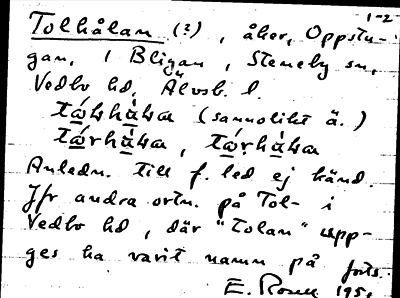 1-2
Tolhålan (?), åker, Oppstu-
gan, i Bligan, Steneby sn,
Vedbo hd, Älvsb. l.
(sannolikt ä.)
Anledn. till f. led ej känd.
Jfr andra ortn. på Tol- i
Vedbo hd, där "Tolan" upp-
ges ha varit namn på
E. Rosell 195